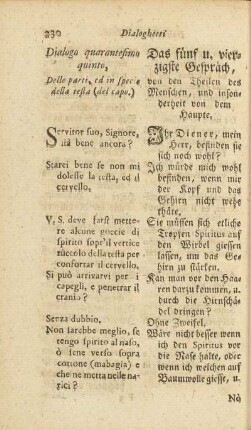 230 Dialoghetti
Dialogo quarantesimo
quinto,
Delle parti, ed in specie
della testa (del capo.)
Servitor suo, Signore,
stà bene ancora?
Starei bene se non mi
dolesse la testa, ed il
cervello.
V. S. deve farsi mette-
re alcune goccie di
spirito sopr'il vertice
zuccolo della testa per
confortar il cervello.
Si può arrivarvi per i
capegli, e penetrar il
crania?
Senza dubbio.
Non sarebbe meglio, se
tengo spirito al naso,
ò lene verso sopra
cottone (mabagia) e
che ne metta nelle na-
rici?
Das fünf u. vier-
zigste Gespräch,
von den Theilen des
Menschen, und inson-
derheit von dem
Haupte.
Ihr Diener, mein
Herr, befinden sie
sich noch wohl?
Ich würde mich wohl
befinden, wenn mir
der Kopf und das
Gehirn nicht wehe
thäte.
Sie müssen sich etliche
Tropfen Spiritus auf
den Wirbel giessen
lassen, um das Ge-
hirn zu stärken.
Kan man vor den Haa-
ren darzu kommen, u.
durch die Hirnschä-
del dringen?
Ohne Zweifel.
Wäre nicht besser wenn
ich den Spiritus vor
die Nase halte, oder
wenn ich welchen auf
Baumwolle giesse, u.
No